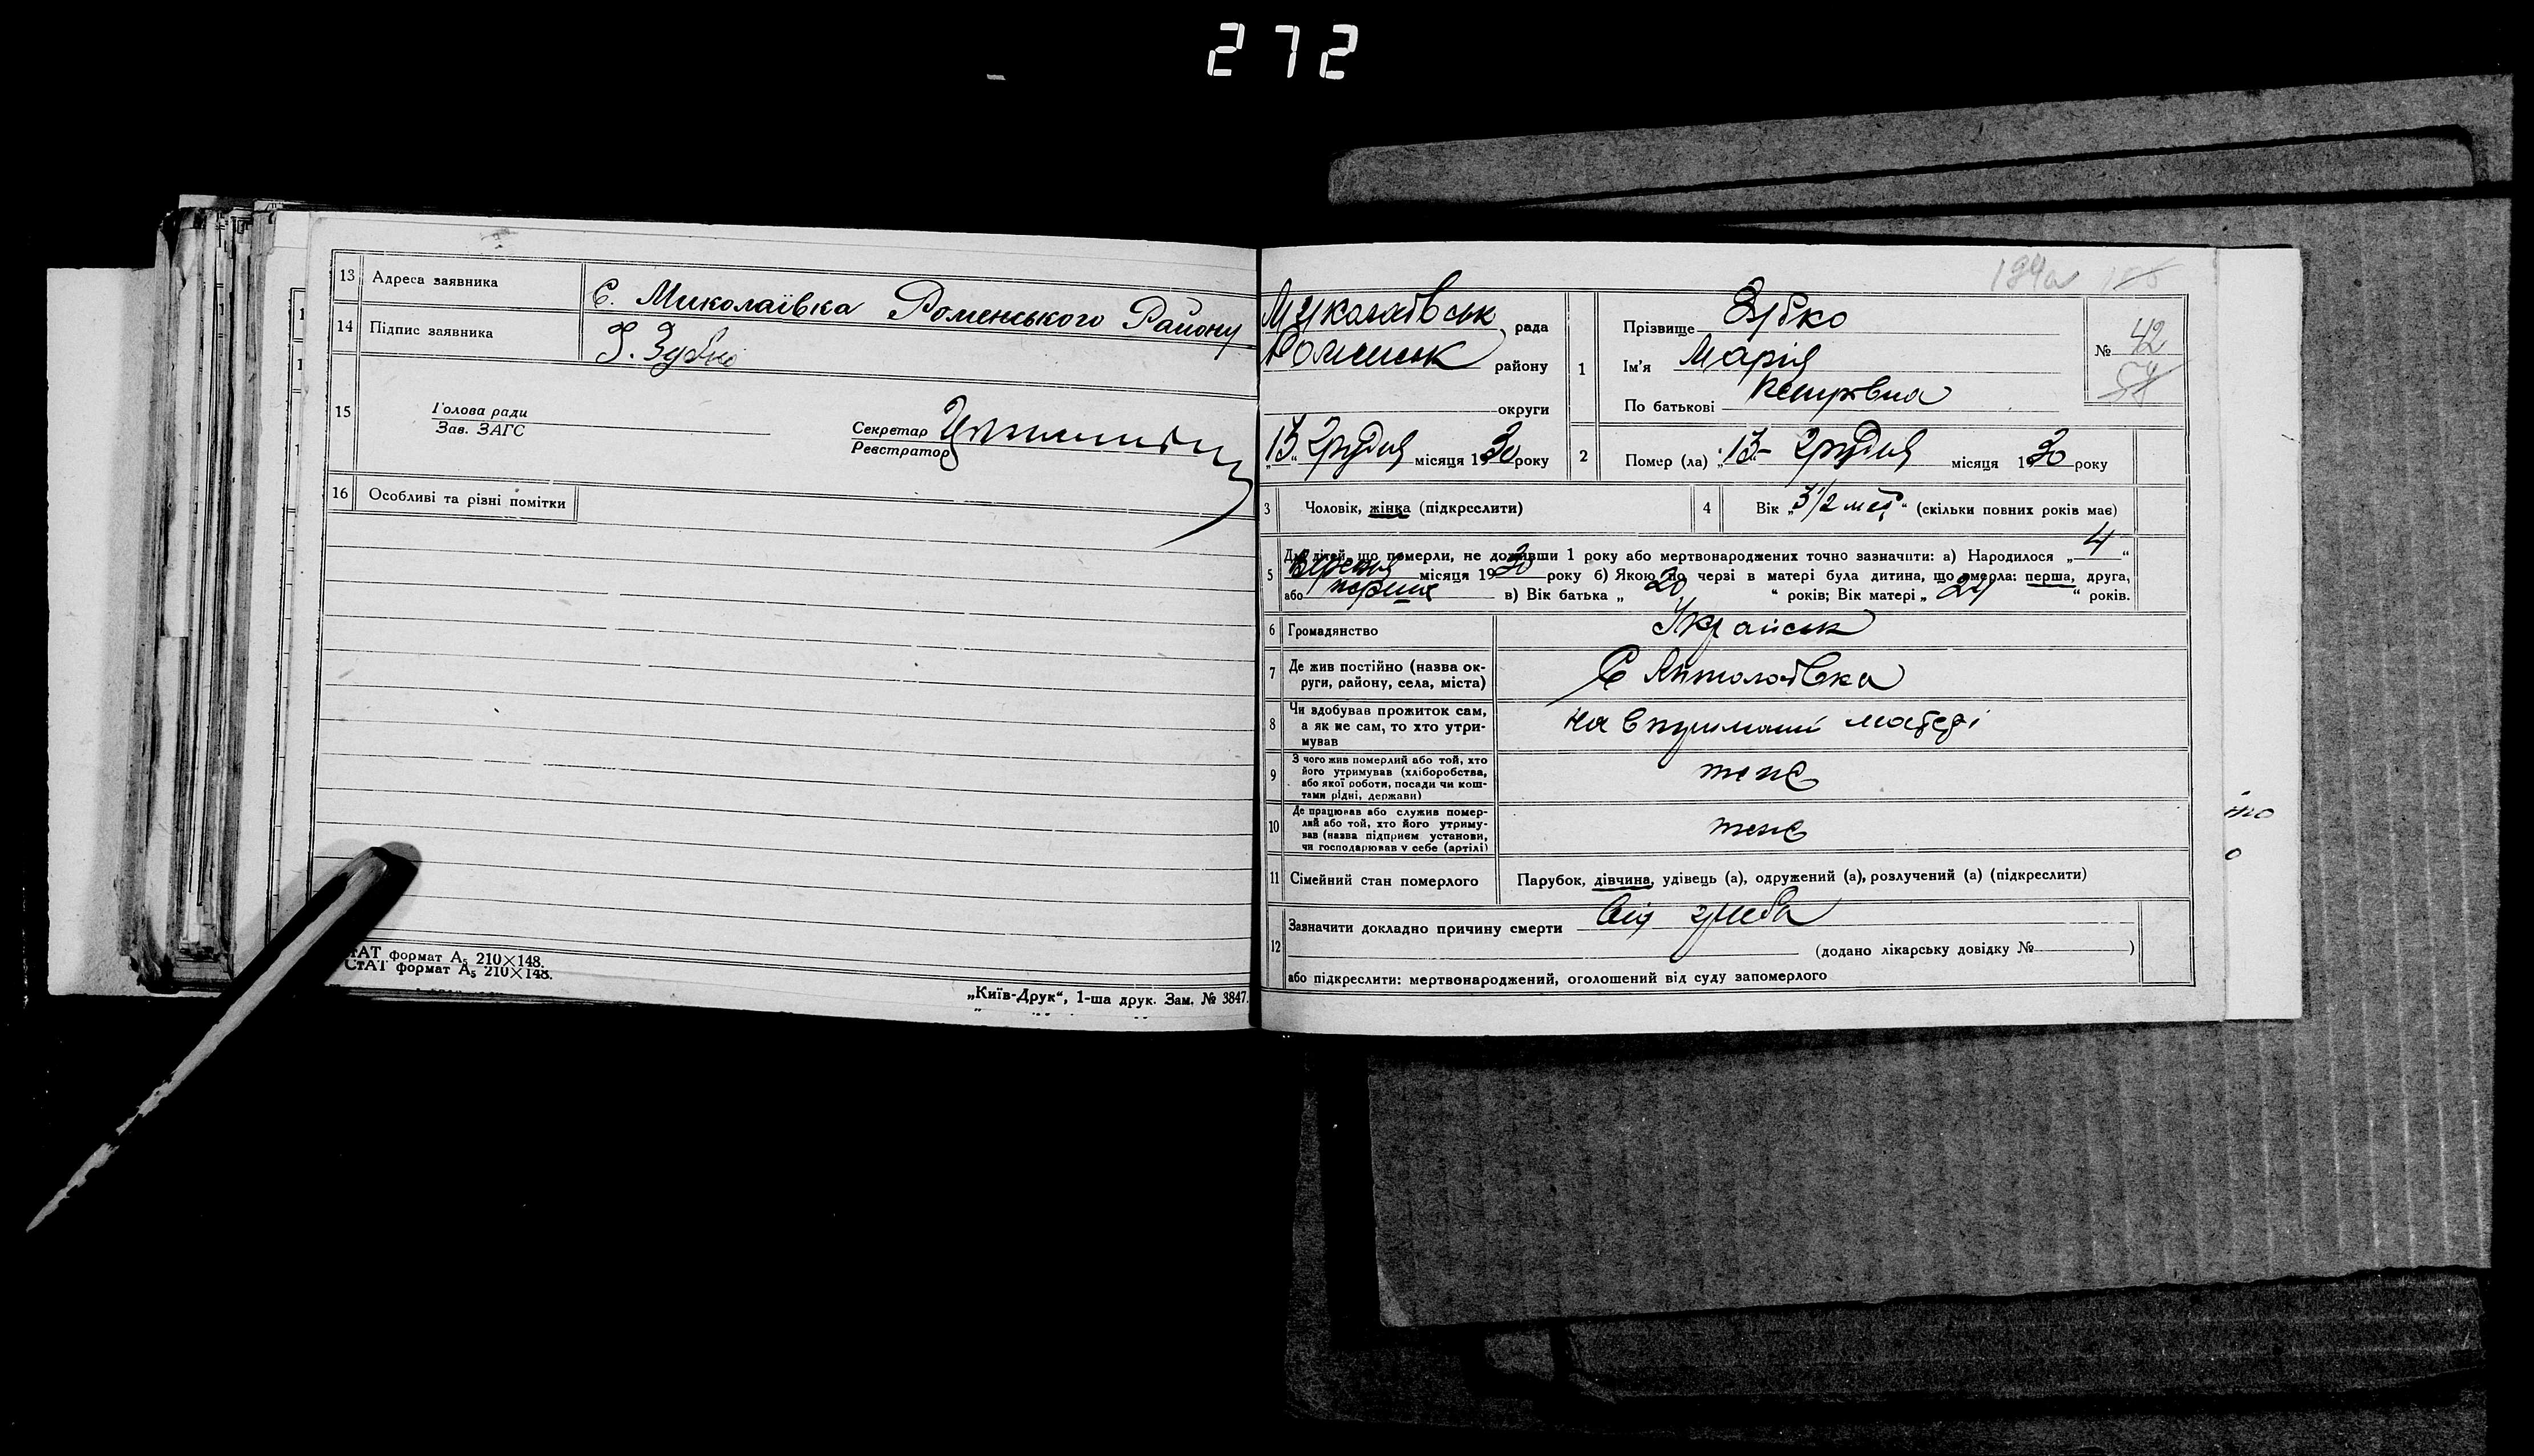 272
13 Адреса заявника С. Миколаївка Роменського Району
14 Підпис заявника Зубко
15 Голова ради
Зав. ЗАГС
Секретар
Реєстратор
16 Особливі та різні помітки
СтАТ формат А₅ 210×148.
„Київ-Друк“, 1-ша друк. Зам. № 3847.
194а
рада
Роменськ району
округи
„13“ Грудня місяця 1930 року
1 Прізвище Зубко
Ім'я Марія
По батькові Петрівна
№ 42
54
2 Помер (ла) „13“ Грудня місяця 1930 року
3 Чоловік, жінка (підкреслити)
4 Вік „3 1/2 міс“ (скільки повних років має)
5 Для дітей, що померли, не доживши 1 року або мертвонароджених точно зазначити: а) Народилося „4“
Вересня місяця 1930 року б) Якою по черзі в матері була дитина, що вмерла: перша, друга,
або перше в) Вік батька „20“ років; Вік матері „24“ років.
6 Громадянство Українськ
7 Де жив постійно (назва ок-
руги, району, села, міста) С
8 Чи здобував прожиток сам,
а як не сам, то хто утри-
мував на втриманні матері
9 З чого жив померлий або той, хто
його утримував (хліборобства,
або якої роботи, посади чи кош-
тами рідні, держави) теж
10 Де працював або служив помер-
лий або той, хто його утриму-
вав (назва підприєм установи,
чи господарював у себе (артілі) теж
11 Сімейний стан померлого Парубок, дівчина, удівець (а), одружений (а), розлучений (а) (підкреслити)
12 Зазначити докладно причину смерти Від
(додано лікарську довідку № )
або підкреслити: мертвонароджений, оголошений від суду запомерлого